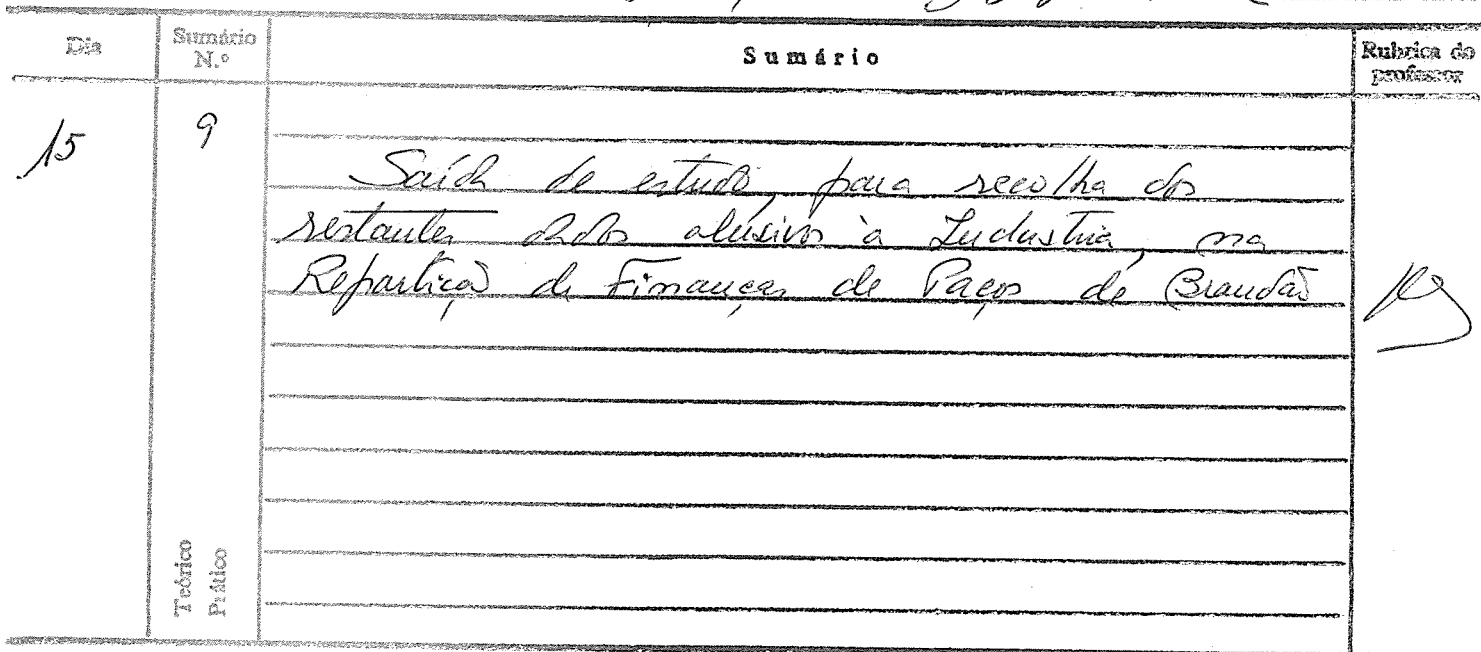 Dia Sumário N.º Sumário Rubrica do professor
15 9
Saída de estudo, para recolha dos
restantes dados alusivos à Industria, na
Repartição de Finanças de Paços de Brandão
Teórico
Prático